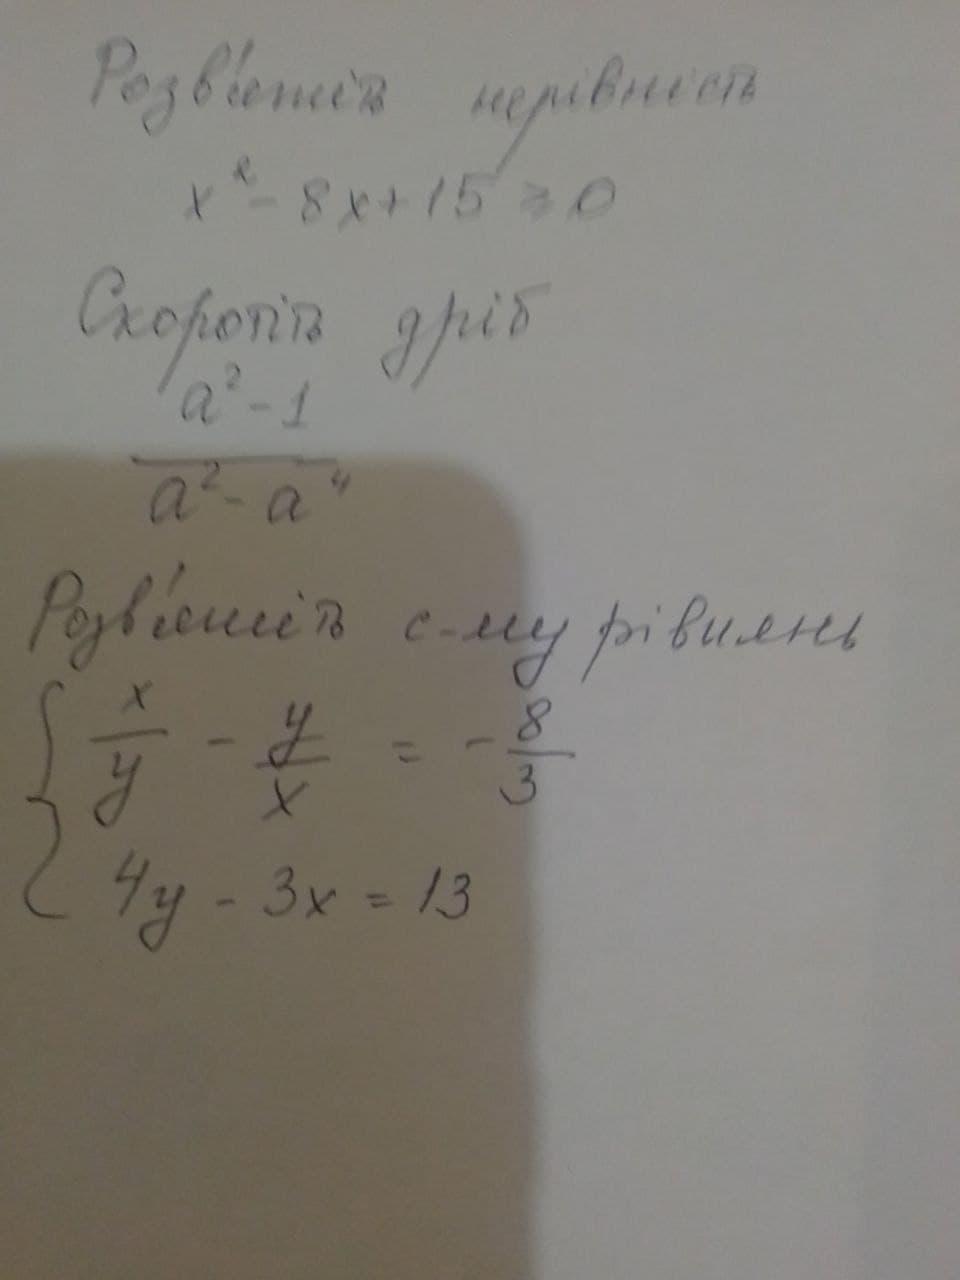 Розв'яжіть нерівність
x² - 8x + 15 ≥ 0
Скоротіть дріб
a² - 1
a² - a⁴
Розв'яжіть с-му рівнянь
x/y - y/x = -8/3
4y - 3x = 13